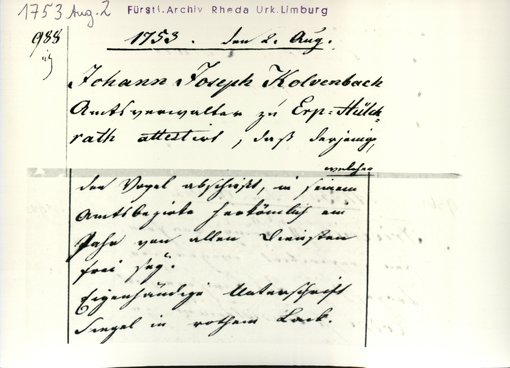 1753 Aug. 2
Fürstl. Archiv Rheda Urk. Limburg
988
1753. den 2. Aug.
Johann Joseph Kolvenbach
Amtsverwalter zu Erp-Hülch
rath attestirt, daß derjenige,
welcher
den Vogel abschießt, in seinem
Amtsbezirke herkömlich ein
Jahr von allen Diensten
frei sey.
Eigenhändige Unterschrift
Siegel in rothem Lack.